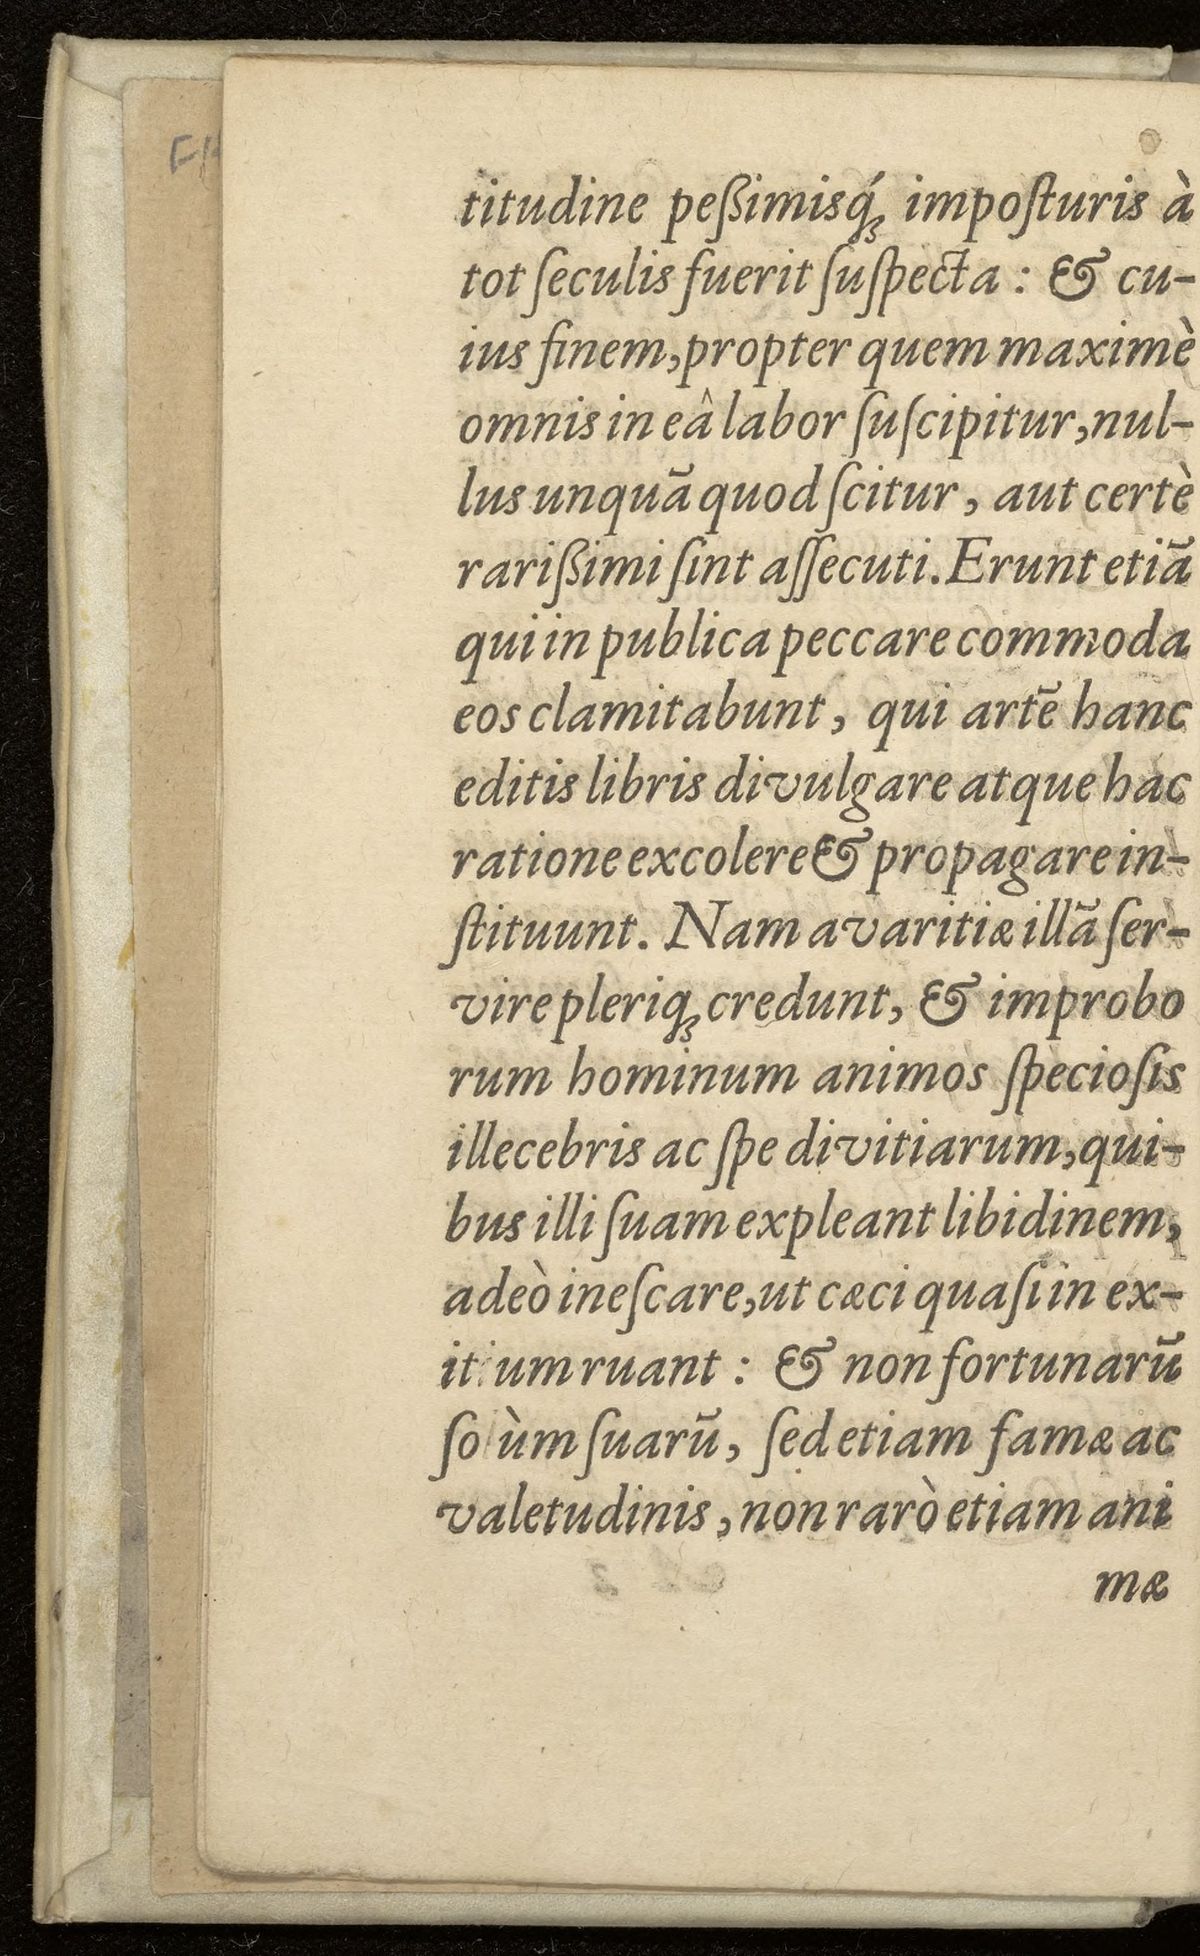 titudine peßimisq́; impoſturis à
tot ſeculis fuerit ſuſpecta : & cu-
ius finem, propter quem maximè
omnis in eâ labor ſuſcipitur, nul-
lus unquã quod ſcitur, aut certè
rarißimi ſint aſſecuti. Erunt etiã
qui in publica peccare commoda
eos clamitabunt, qui artẽ hanc
editis libris divulgare atque hac
ratione excolere & propagare in-
ſtituunt. Nam avaritiæ illã ſer-
vire pleriq; credunt, & improbo
rum hominum animos ſpecioſis
illecebris ac ſpe divitiarum, qui-
bus illi ſuam expleant libidinem,
adeò ineſcare, ut cæci quaſi in ex-
itium ruant : & non fortunarũ
ſolùm ſuarũ, ſed etiam famæ ac
valetudinis, non rarò etiam ani
mæ